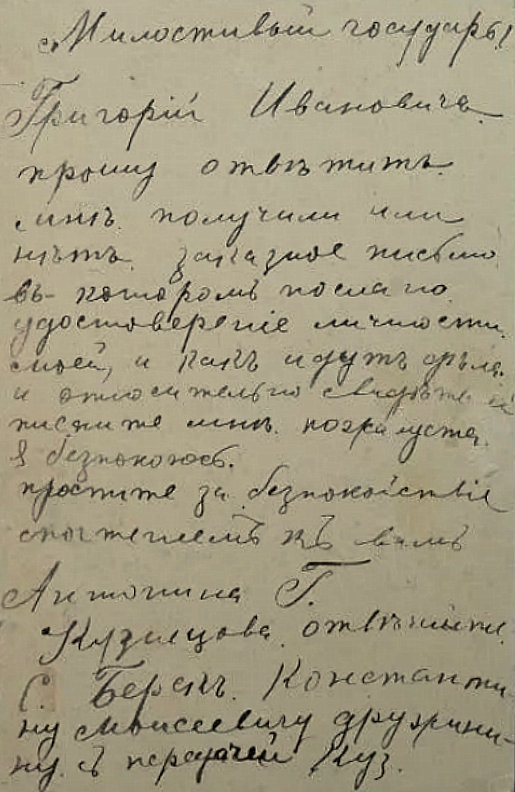 Милостивый государь!
Григорій Ивановичъ.
прошу отвѣтить
мнѣ. получили или
нѣтъ. заказное письмо
въ которомъ послано.
удостоверение личности.
моей, и какъ идутъ дѣла.
и относительно
пишите мнѣ. пожалуста.
я безпокоюсь.
простите за безпокойствіе
с почтениемъ къ вамъ
Антонина Г.
Кузнецова. отвѣчайте.
С. Берскъ. Константи-
ну Моисеевичу Дружини-
ну. съ передачей Куз.